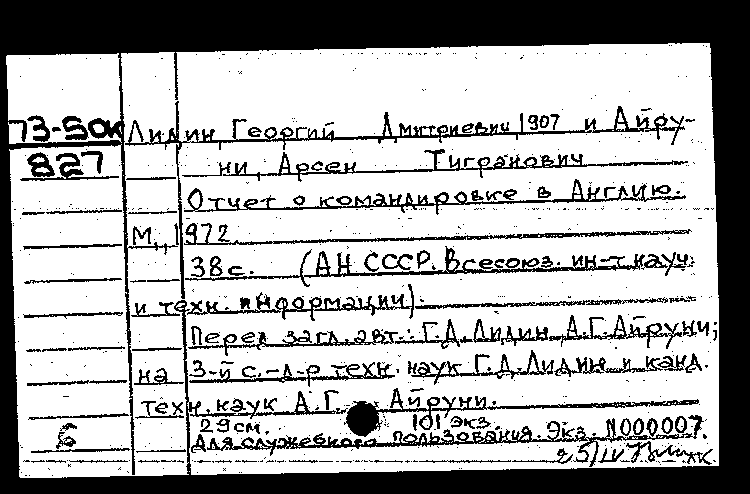 73-50к Лидин, Георгий Дмитриевич, 1907 и Айру-
827 ни, Арсен Тигранович
Отчет о командировке в Англию.
М., 1972.
38 с. (АН СССР. Всесоюз. ин-т науч.
и техн. информации).
Перед загл. авт.: Г.Д. Лидин, А.Г. Айруни;
на 3-й с. - д-р техн. наук Г.Д. Лидин и канд.
техн. наук А.Г. Айруни.
29 см. 101 экз.
б Для служебного пользования. Экз. N000007.